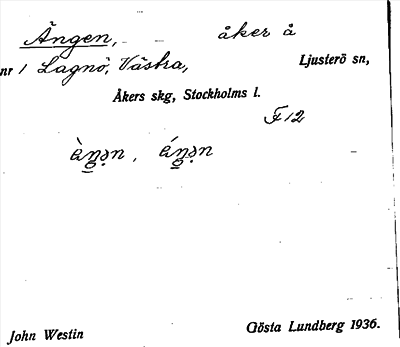 Ängen, åker å
nr 1 Lagnö, Västra, Ljusterö sn,
Åkers skg, Stockholms l.
F12
John Westin Gösta Lundberg 1936.